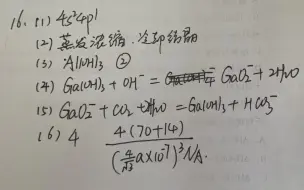 16. (1) 4s²4p1
(2) 蒸发浓缩．冷却结晶
(3) Al(OH)₃ ②
(4) Ga(OH)₃ + OH⁻ = GaO₂⁻ + 2H₂O
(5) GaO₂⁻ + CO₂ + 2H₂O = Ga(OH)₃ + HCO₃⁻
(6) 4 4(70+14)
(4/√3 a×10⁻⁷)³NA.